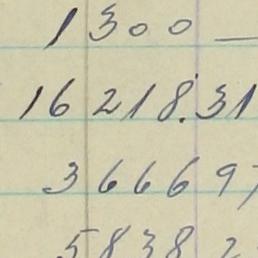 1300 —
16218.31
366697
58382